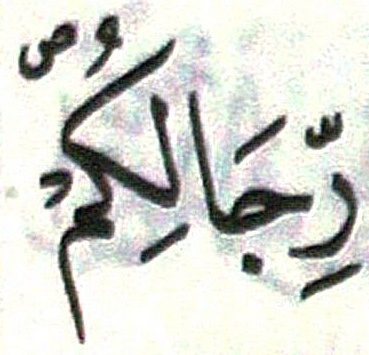 رِّجَالِكُمْ ص